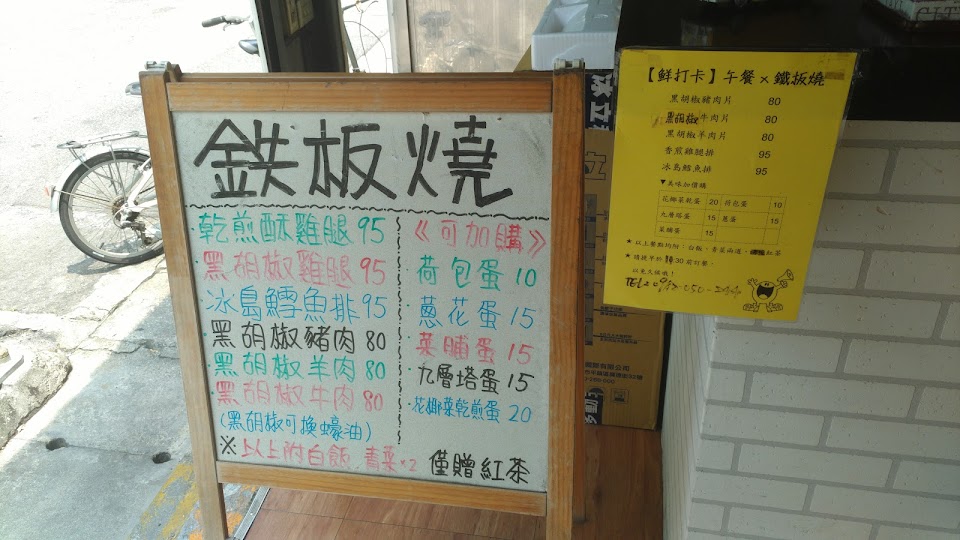 鉄板燒
乾煎酥雞腿 95
黑胡椒雞腿 95
冰島鱈魚排 95
黑胡椒豬肉 80
黑胡椒羊肉 80
黑胡椒牛肉 80
(黑胡椒可換蠔油)
《可加購》
荷包蛋 10
蔥花蛋 15
菜脯蛋 15
九層塔蛋 15
花椰菜乾煎蛋 20
※以上附白飯 青菜×2 僅贈紅茶
【鮮打卡】午餐×鐵板燒
黑胡椒豬肉片 80
黑胡椒牛肉片 80
黑胡椒羊肉片 80
香煎雞腿排 95
冰島鱈魚排 95
▼美味加價購
花椰菜乾蛋 20 荷包蛋 10
九層塔蛋 15 蔥蛋 15
菜脯蛋 15
★以上餐點均附:白飯、青菜兩道、紅茶
以免久候哦!